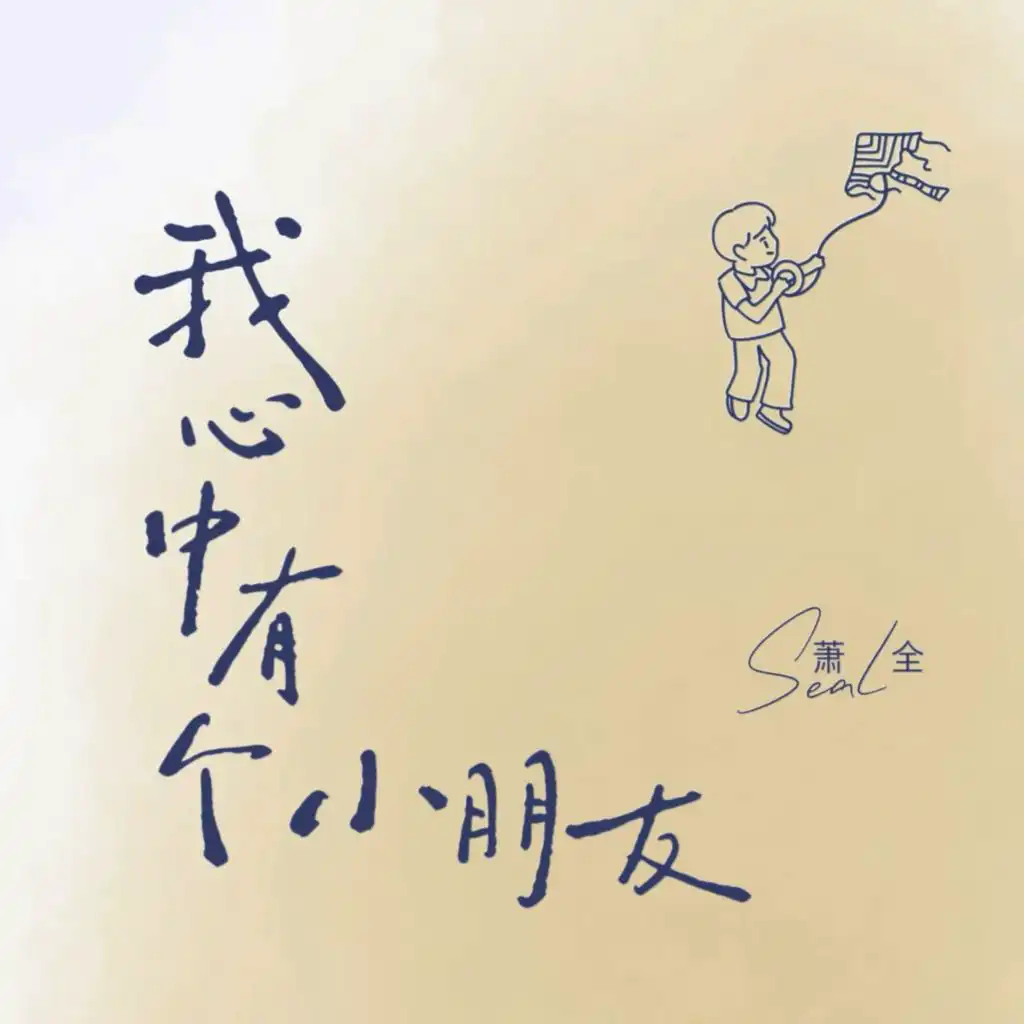 我心中有个小朋友
萧全
Seal